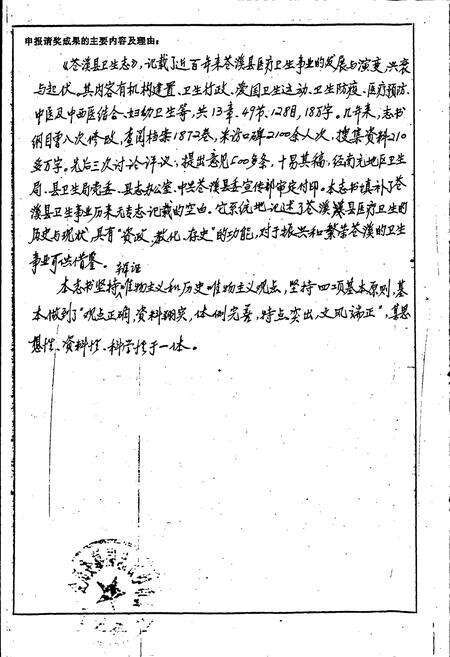 申报请奖成果的主要内容及理由：
《苍溪县卫生志》，记载了近百年来苍溪县医疗卫生事业的发展与演变，兴衰
与起伏。其内容有机构建置、卫生行政、爱国卫生运动、卫生防疫、医疗预防、
中医及中西医结合、妇幼卫生等，共13章、49节、128目，18万字。几年来，志书
纲目曾八次修改，查阅档案1872卷，采访口碑2100余人次，搜集资料210
多万字。先后三次讨论评议，提出意见600多条，十易其稿，经南充地区卫生
局、县卫生局党委、县志办公室、中共苍溪县委宣传部审定付印。本志书填补了苍
溪县卫生事业历来无专志记载的空白。它系统地记述了苍溪县医疗卫生的
历史与现状，具有"资政、教化、存史"的功能，对于振兴和繁荣苍溪的卫生
事业可供借鉴。
本志书坚持辩证唯物主义和历史唯物主义观点，坚持四项基本原则，基
本做到了"观点正确，资料翔实，体例完善，特点突出，文风端正"，集思
想性、资料性、科学性于一体。